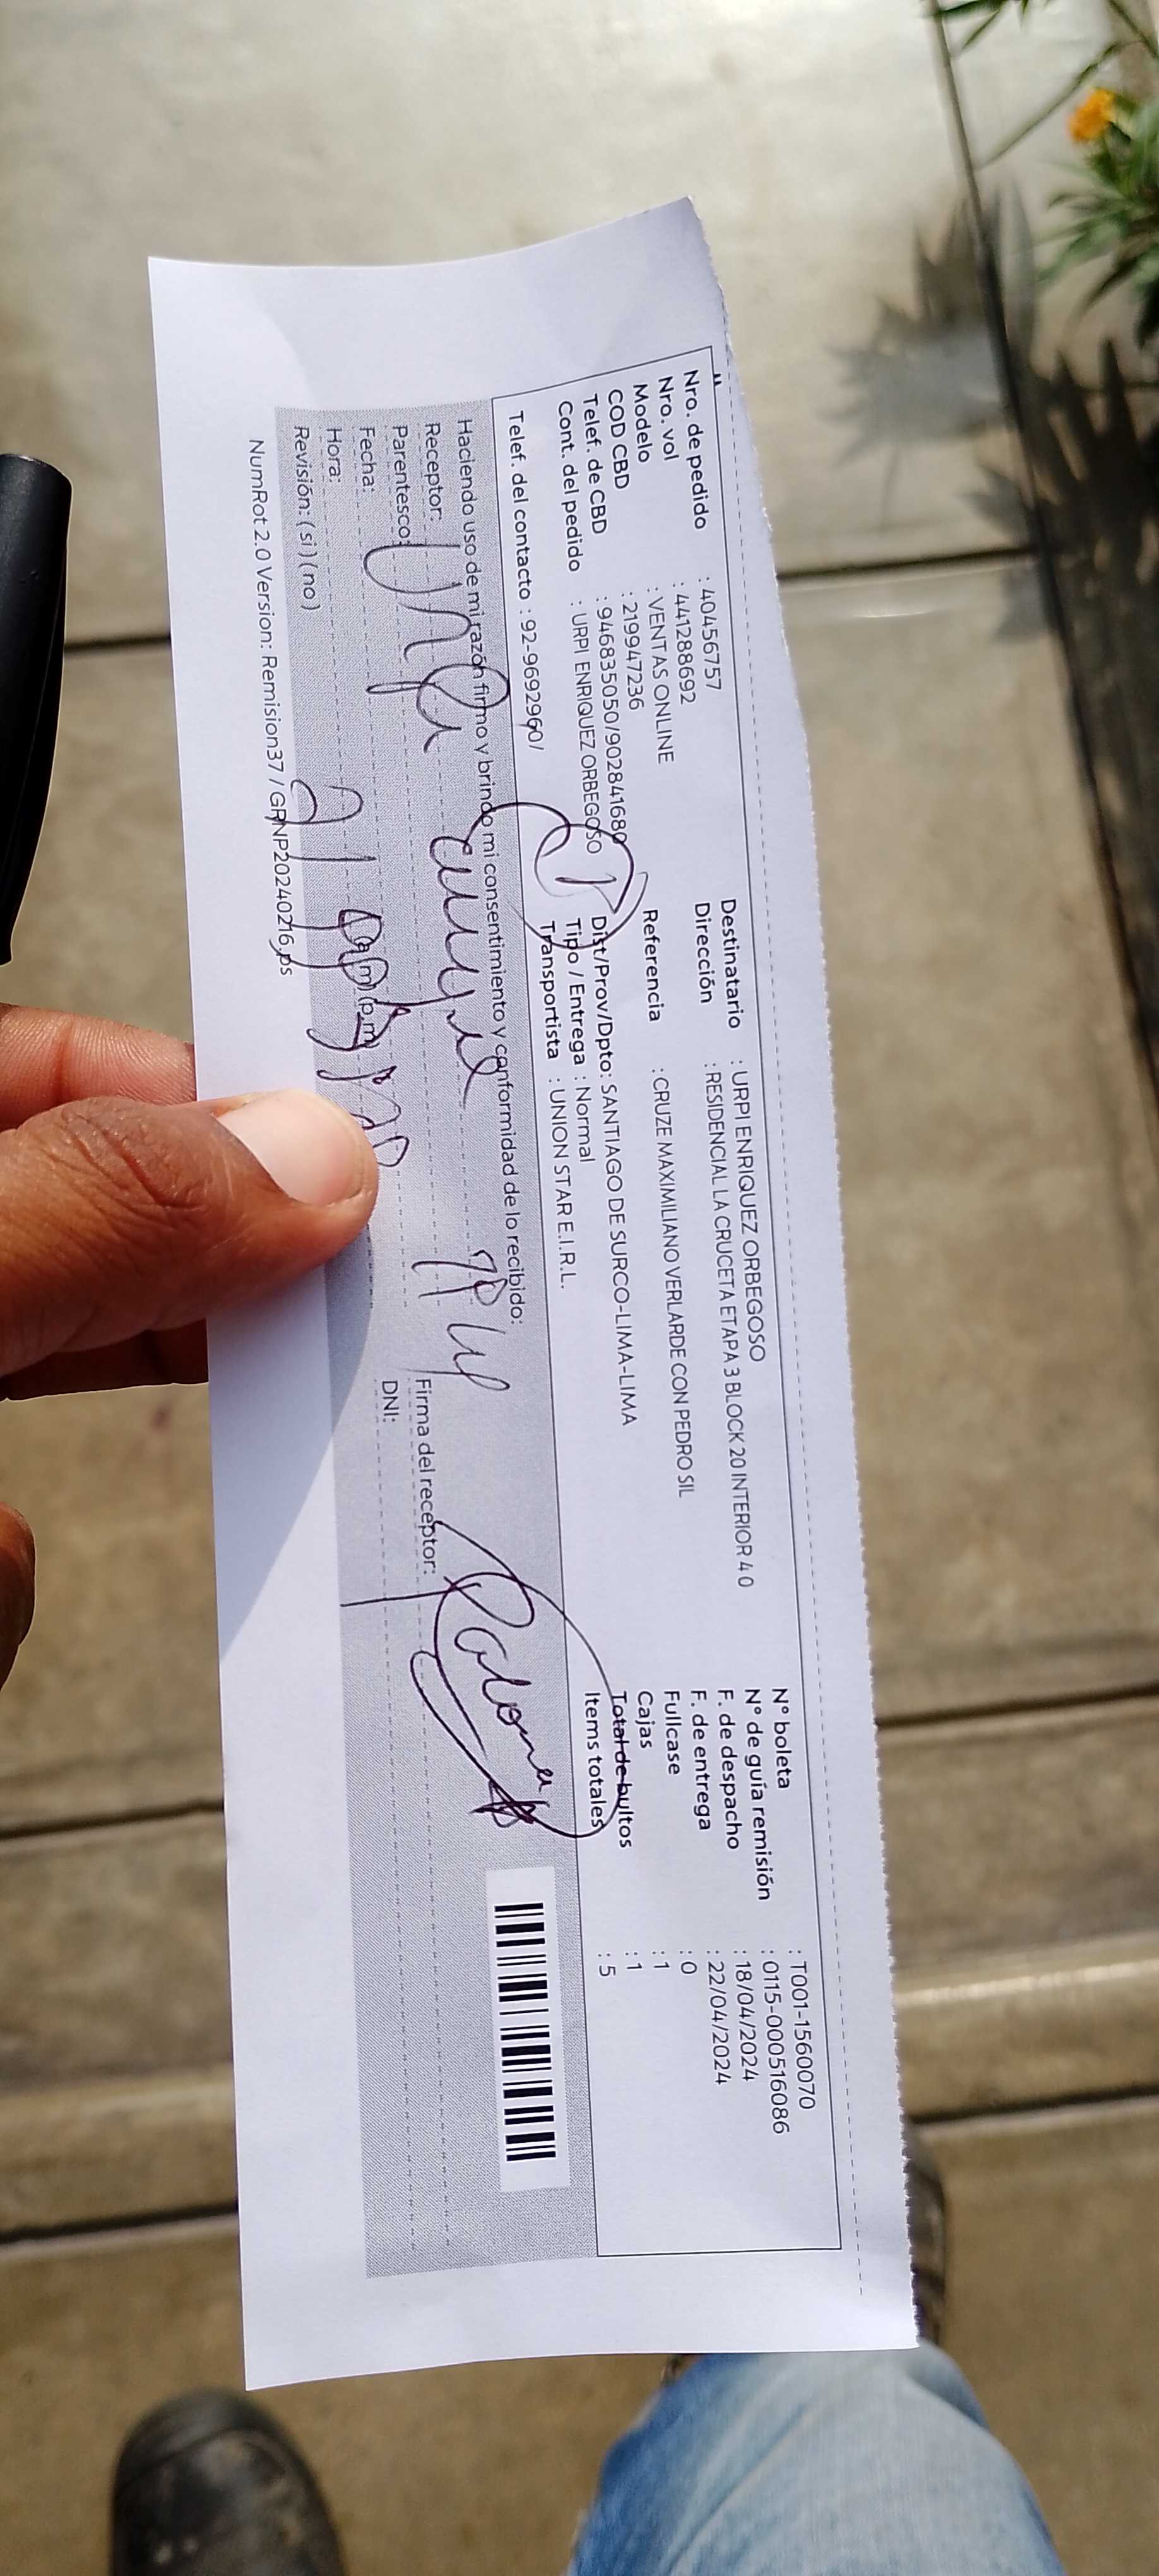 Nro. de pedido : 40456757
Nro. vol : 441288692
Modelo : VENTAS ONLINE
COD CBD : 219947236
Telef. de CBD : 946835050/902841680
Cont. del pedido : URPI ENRIQUEZ ORBEGOSO
Telef. del contacto : 92-9692960/
Destinatario : URPI ENRIQUEZ ORBEGOSO
Dirección : RESIDENCIAL LA CRUCETA ETAPA 3 BLOCK 20 INTERIOR 40
Referencia : CRUZE MAXIMILIANO VERLARDE CON PEDRO SIL
Dist/Prov/Dpto: SANTIAGO DE SURCO-LIMA-LIMA
Tipo / Entrega : Normal
Transportista : UNION STAR E.I.R.L.
N° boleta : T001-1560070
N° de guía remisión : 0115-000516086
F. de despacho : 18/04/2024
F. de entrega : 22/04/2024
Fullcase : 0
Cajas : 1
Total de bultos : 1
Items totales : 5
Haciendo uso de mi razón firmo y brindo mi consentimiento y conformidad de lo recibido:
Receptor:
Parentesco:
Fecha:
Hora: (a.m) (p.m)
Revisión: ( si ) ( no )
Firma del receptor:
DNI:
NumRot 2.0 Version: Remision37 / GRNP20240216.ps